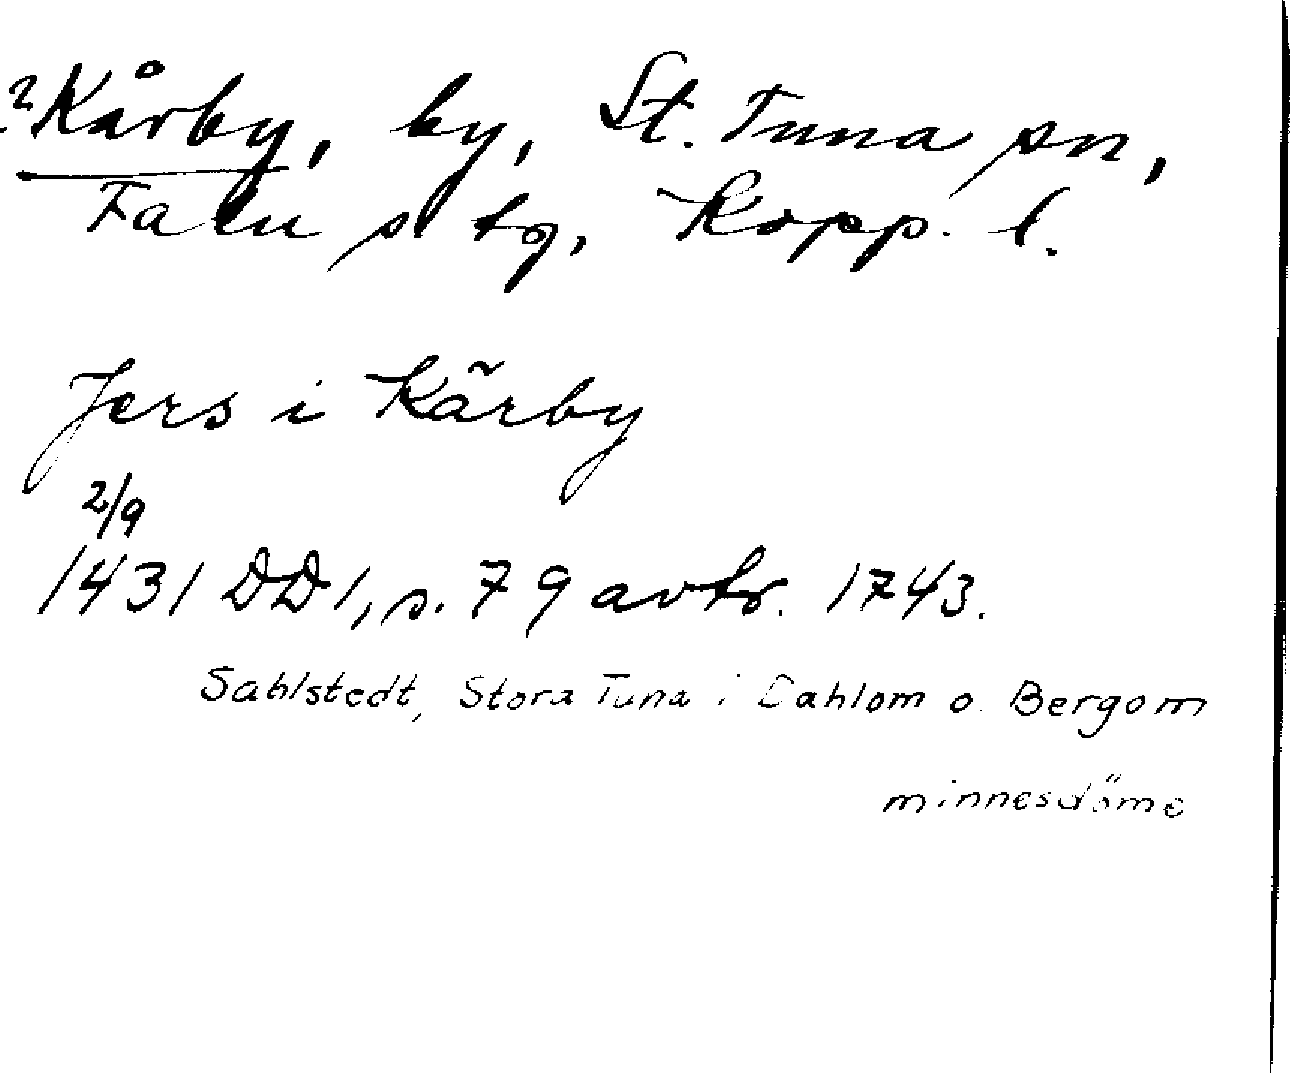 ? Kårby, by, St. Tuna sn,
Falu s tg, Kopp. l.
Jers i Kärby
2/9
1431 DD 1, s. 79 avtr. 1743.
Sahlstedt, Stora Tuna i Dahlom o. Bergom
minnesdöme